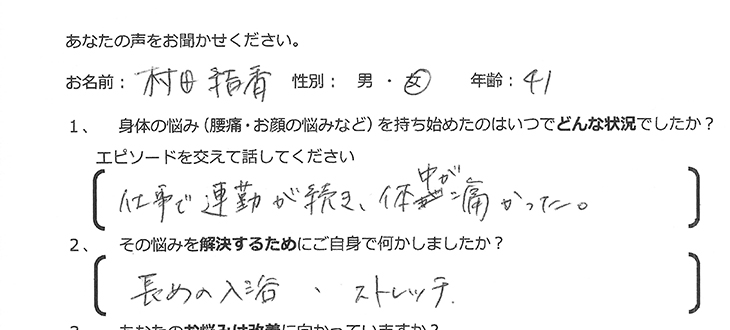 あなたの声をお聞かせください。
お名前: 村田 性別: 男・女 年齢: 41
1、 身体の悩み(腰痛・お顔の悩みなど)を持ち始めたのはいつでどんな状況でしたか?
エピソードを交えて話してください
仕事で連勤が続き、体中が痛かった。
2、 その悩みを解決するためにご自身で何かしましたか?
長めの入浴、ストレッチ.